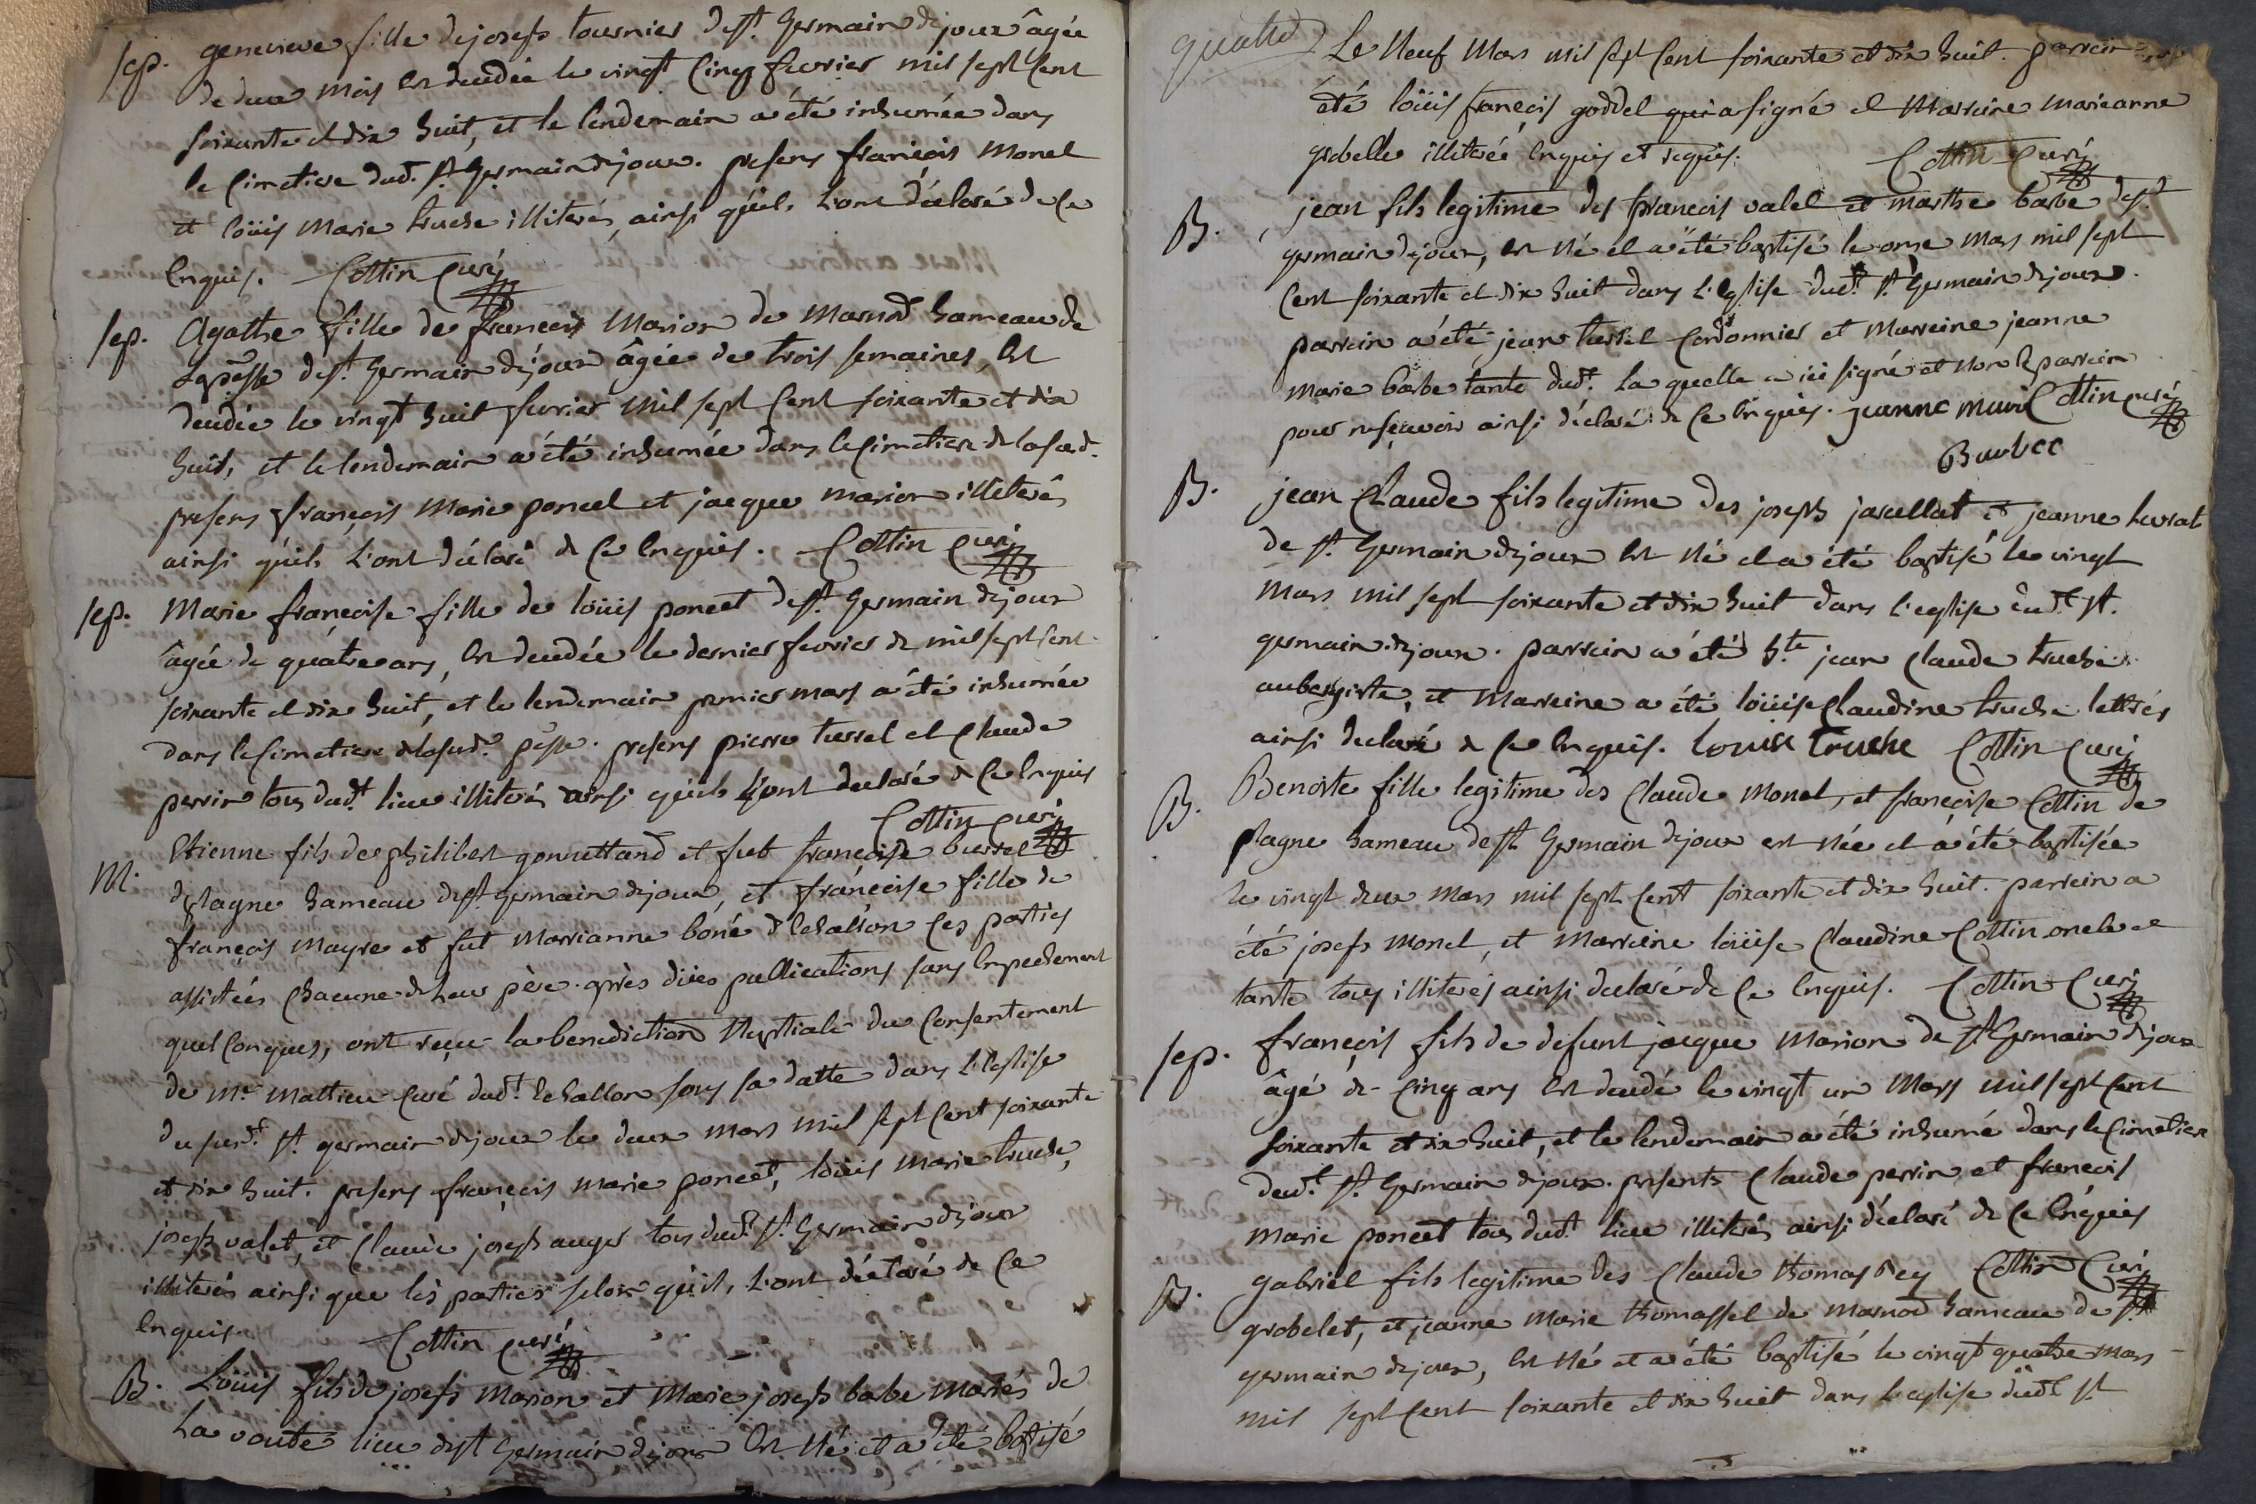 sep. genevieve fille de joseph tournier de st. Germain de joux âgée
de deux mois est decedée le vingt cinq fevrier mil sept cent
soixante et dix huit, et le lendemain a été inhumée dans
le cimetiere dud. st. Germain de joux. presens françois Monel
et loüis Marie truche illiterés, ainsi qu'ils l'ont déclaré de ce
Enquis. Cottin Curé
sep. Agathe fille de françois Marion de Marnod hameau de
de st. Germain dejoux âgée de trois semaines, est
decedée le vingt huit fevrier mil sept cent soixante et dix
huit, et le lendemain a été inhumée dans le cimetiere de lasud.
presens françois Marie poncet et jacque Marion illiterés
ainsi qu'ils l'ont déclaré de ce Enquis. Cottin Curé
sep. Marie françoise fille de loüis poncet de st. Germain dejoux
âgée de quatre ans, est decedée le dernier fevrier de mil sept cent
soixante et dix huit, et le lendemain premier mars a été inhumée
dans le cimetiere de lasud. psse. presens pierre turrel et Claude
perrin tous dudt. lieu illiterés ainsi qu'ils l'ont declaré de ce Enquis
Cottin Curé
M. Etienne fils de philibert gonnettand et fut françoise burrel
de plagne hameau de st. Germain dejoux, et françoise fille de
françois Mayre et fut Marrianne boné d'Echallon ces parties
assistées chacune de leur père. après dües publications sans Empechement
quelconques, ont reçu la benediction Nuptiale du Consentement
de Mr. Mathieu curé dudt. Echallon sous sa datte dans L'Eglise
du susdt. st. germain dejoux le deux mars mil sept cent soixante
et dix huit. presens françois Marie poncet, loüis Marie truche,
joseph valet, et Claude joseph auger tous dudt. st. Germain dejoux
illiterés ainsi que les parties selon qu'ils l'ont déclaré de ce
Enquis. Cottin Curé
B. Loüis fils de joseph Marion et Marie joseph barbe mariés de
La voute lieu de st Germain dejoux est Né et a été baptisé
quatre Le Neuf Mars mil sept cent soixante et dix huit. parrain
été loüis françois goddel qui a signé et Marreine marieanne
grobelle illiterée Enquis et requis. Cottin Curé
B. jean fils legitime des françois valet et marthe barbe de st.
germain dejoux, est Né et a été baptisé le onze Mars mil sept
cent soixante et dix huit dans l'Eglise dudt. st. Germain dejoux.
parrein a été jean turrel cordonnier et Marreine jeanne
marie barbe tante dudt. La quelle a ici signé et non le parrein
pour ne sçavoir ainsi déclaré de ce Enquis. jeanne marie Cottin curé
Barbee
B. jean Claude fils legitime des joseph et jeanne
de st. Germain dejoux est Né et a été baptisé le vingt
mars mil sept soixante et dix huit dans l'eglise dudt. st.
germain dejoux. parrein a été jean Claude truche
aubergiste, et Marreine a été loüise Claudine truche lettrés
ainsi declaré de ce Enquis. Louise Truche Cottin Curé
B. Benoite fille legitime des Claude Monet, et françoise Cottin de
plagne hameau de st Germain dejoux est Née et a été baptisée
le vingt deux Mars mil sept cent soixante et dix huit. parrein a
été joseph Monet, et Marreine loüise Claudine Cottin oncle et
tante tous illiterés ainsi declaré de ce Enquis. Cottin Curé
sep. françois fils de defunt jacque Marion de st Germain dejoux
âgé de cinq ans est decedé le vingt un Mars mil sept cent
soixante et dix huit, et le lendemain a été inhumé dans le cimetiere
dudt. st. Germain dejoux. presents Claude perrin et françois
marie poncet tous dudt. lieu illiterés ainsi déclaré de ce Enquis
B. gabriel fils legitime des Claude Cottin Curé
grobelet, et jeanne Marie thomasset de Marnod hameau de st
germain dejoux, est Né et a été baptisé le vingt quatre mars
mil sept cent soixante et dix huit dans l'eglise dudt st